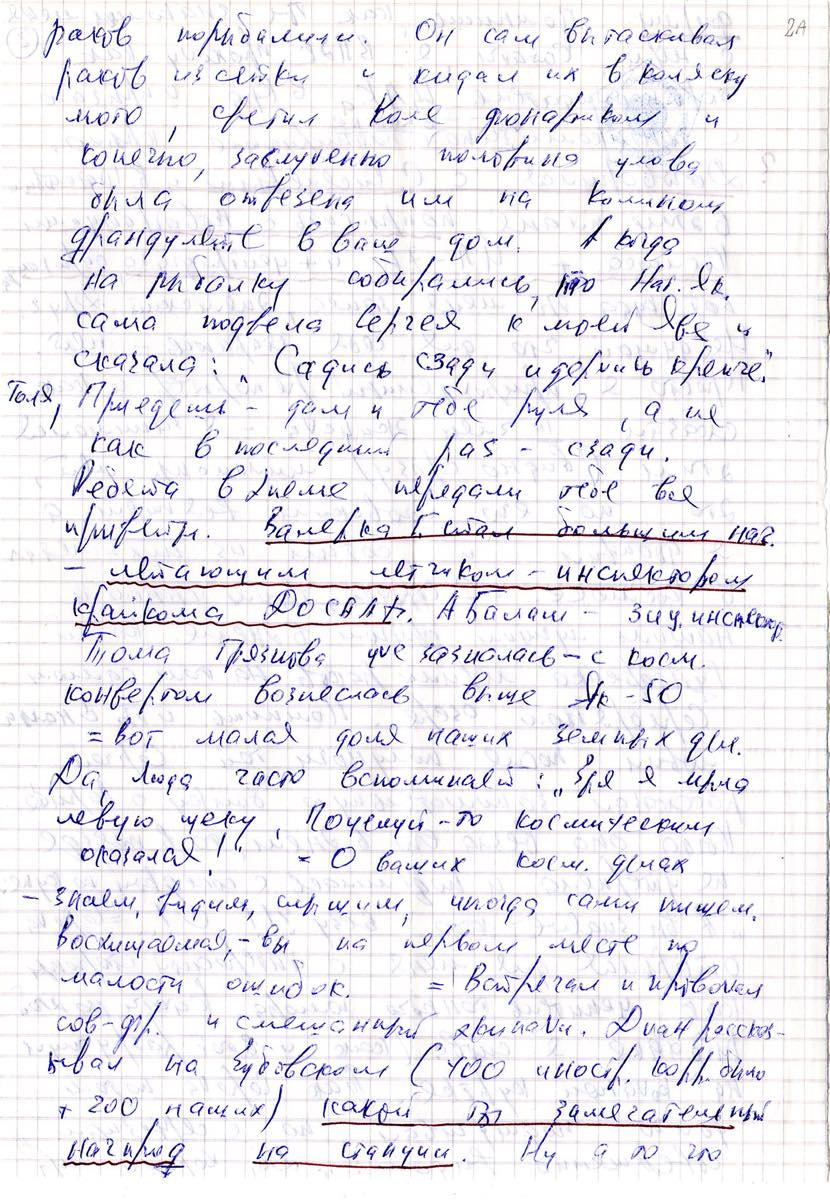 2А
раков порыбалили. Он сам вытаскивал
раков из сетки и кидал их в коляску
мото, светил Коле фонариком и
конечно, заслуженно половина улова
была отвезена им на Колином
драндулете в ваш дом. А когда
на рыбалку собирались, то Нат. Як.
сама подвела Сергея к моей Яве и
сказала: „Садись сзади и держись крепче".
Толя, Приедешь - дам и тебе руля, а не
как в последний раз - сзади.
Ребята в передали тебе все
приветы. Валерка Г. стал большим нач.
- летающим летчиком-инспектором
крайкома ДОСААФ. А Балаш - инспектор.
Тома Грязнова уже зазналась - с косм.
конвертом вознеслась выше Як-50
= вот малая доля наших земных дел.
Да, Люда часто вспоминает: „Зря я мыла
левую щеку, Поцелуй-то космическим
оказался!" = О ваших косм. делах
- знаем, видим, слышим, иногда сами пишем.
Восхищаемся, - вы на первом месте по
малости ошибок. = Встречал и провожал
сов-фр. и смешанный экипажи. Джан расска-
зывал на Зубовском (400 иностр. корр. было
+ 200 наших) какой ты замечательный
на станции. Ну а то что